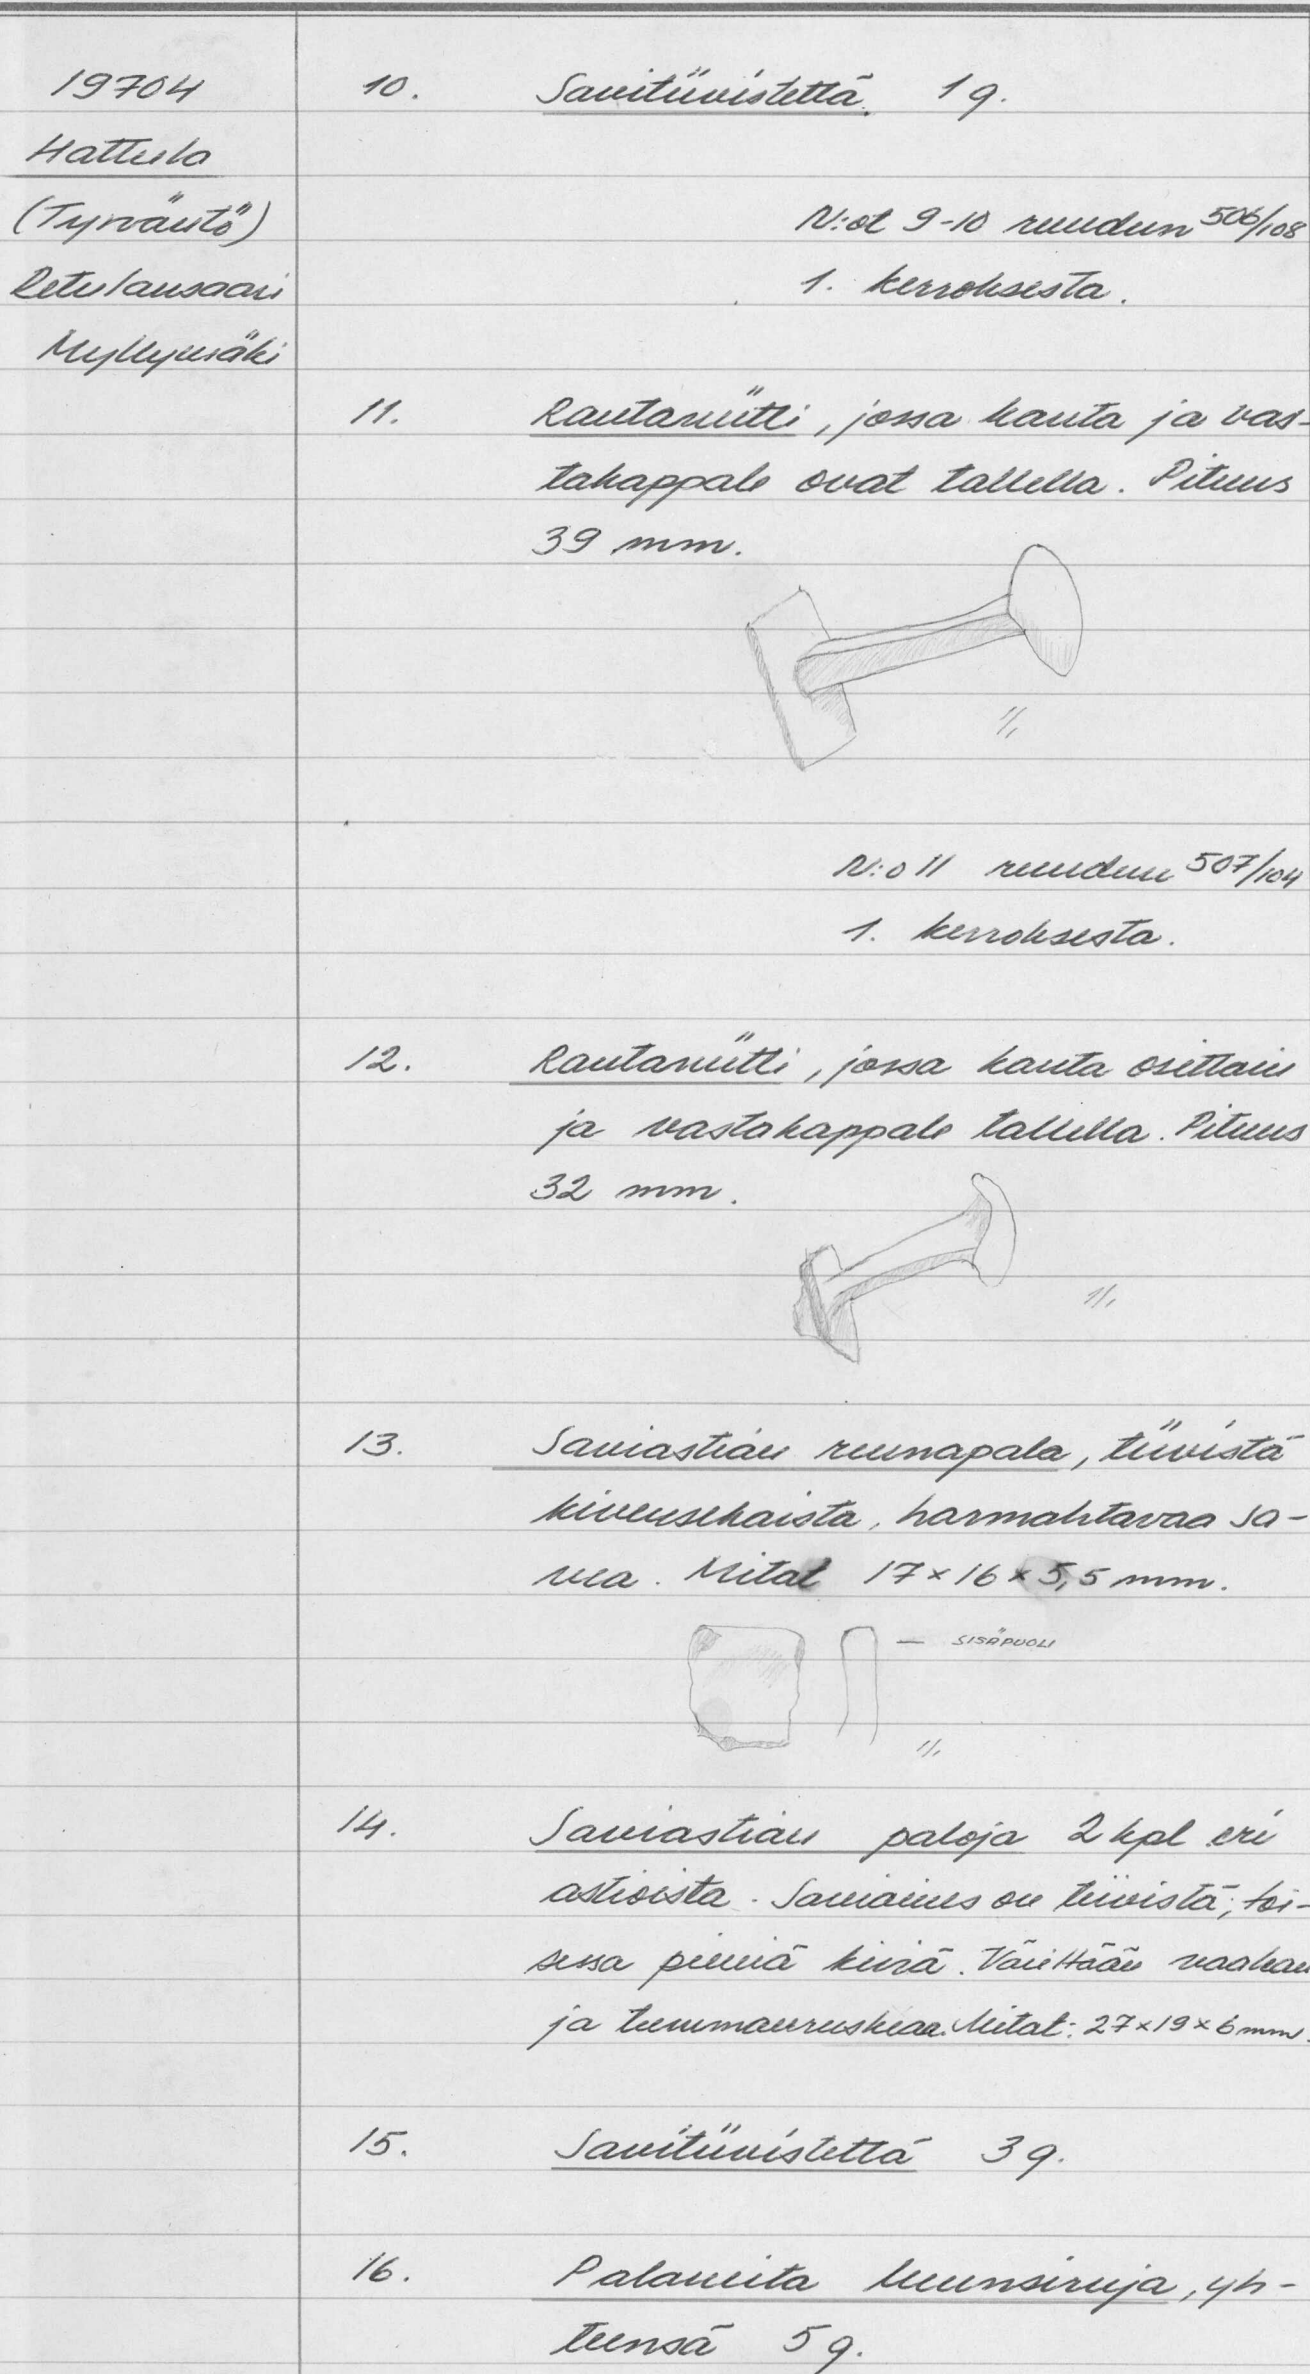 19704
Hattula
(Tyrväntö)
Retulansaari
Myllymäki
10. Savitiivistettä. 1 g.
N:ot 9-10 ruudun 506/108
1. kerroksesta.
11. Rautaniitti, jossa kanta ja vas-
takappale ovat tallella. Pituus
39 mm.
1/1
N:o 11 ruudun 507/104
1. kerroksesta.
12. Rautaniitti, jossa kanta osittain
ja vastakappale tallella. Pituus
32 mm.
1/1
13. Saviastian reunapala, tiivistä
kivensekaista, harmahtavaa sa-
vea. Mitat 17×16×5,5 mm.
— SISÄPUOLI
1/1
14. Saviastian paloja 2 kpl eri
astioista. Saviaines on tiivistä; toi-
sessa pieniä kiviä. Väriltään vaalean
ja tummanruskeaa. Mitat: 27×19×6 mm.
15. Savitiivistettä 3 g.
16. Palaneita luunsiruja, yh-
teensä 5 g.